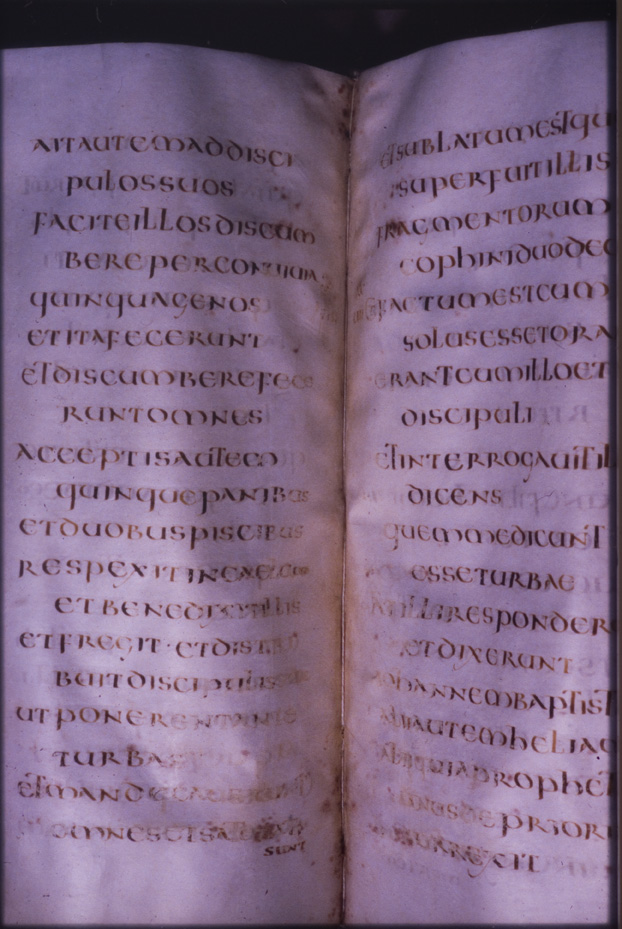 AIT AUTEM AD DISCI
PULOS SUOS
FACITE ILLOS DISCUM
BERE PER CONUIUIA
QUINQUAGENOS
ET ITA FECERUNT
ET DISCUMBERE FECE
RUNT OMNES
ACCEPTIS AUTEM
QUINQUE PANIBUS
ET DUOBUS PISCIBUS
RESPEXIT IN CAELUM
ET BENEDIXIT ILLIS
ET FREGIT · ET DISTRI
BUIT DISCIPULIS
UT PONERENT ANTE
TURBAS
ET MANDUCAUERUNT
OMNES ET SATURATI
SUNT
ET SUBLATUM EST QU
SUPERFUIT ILLIS
FRAGMENTORUM
COPHINI DUODEC
FACTUM EST CUM
SOLUS ESSET ORA
ERANT CUM ILLO ET
DISCIPULI
ET INTERROGAUIT IL
DICENS
QUEM ME DICUNT
ESSE TURBAE
AT ILLI RESPONDER
ET DIXERUNT
IOHANNEM BAPTIST
ALII AUTEM HELIAM
ALII QUIA PROPHET
UNUS DE PRIORI
SURREXIT